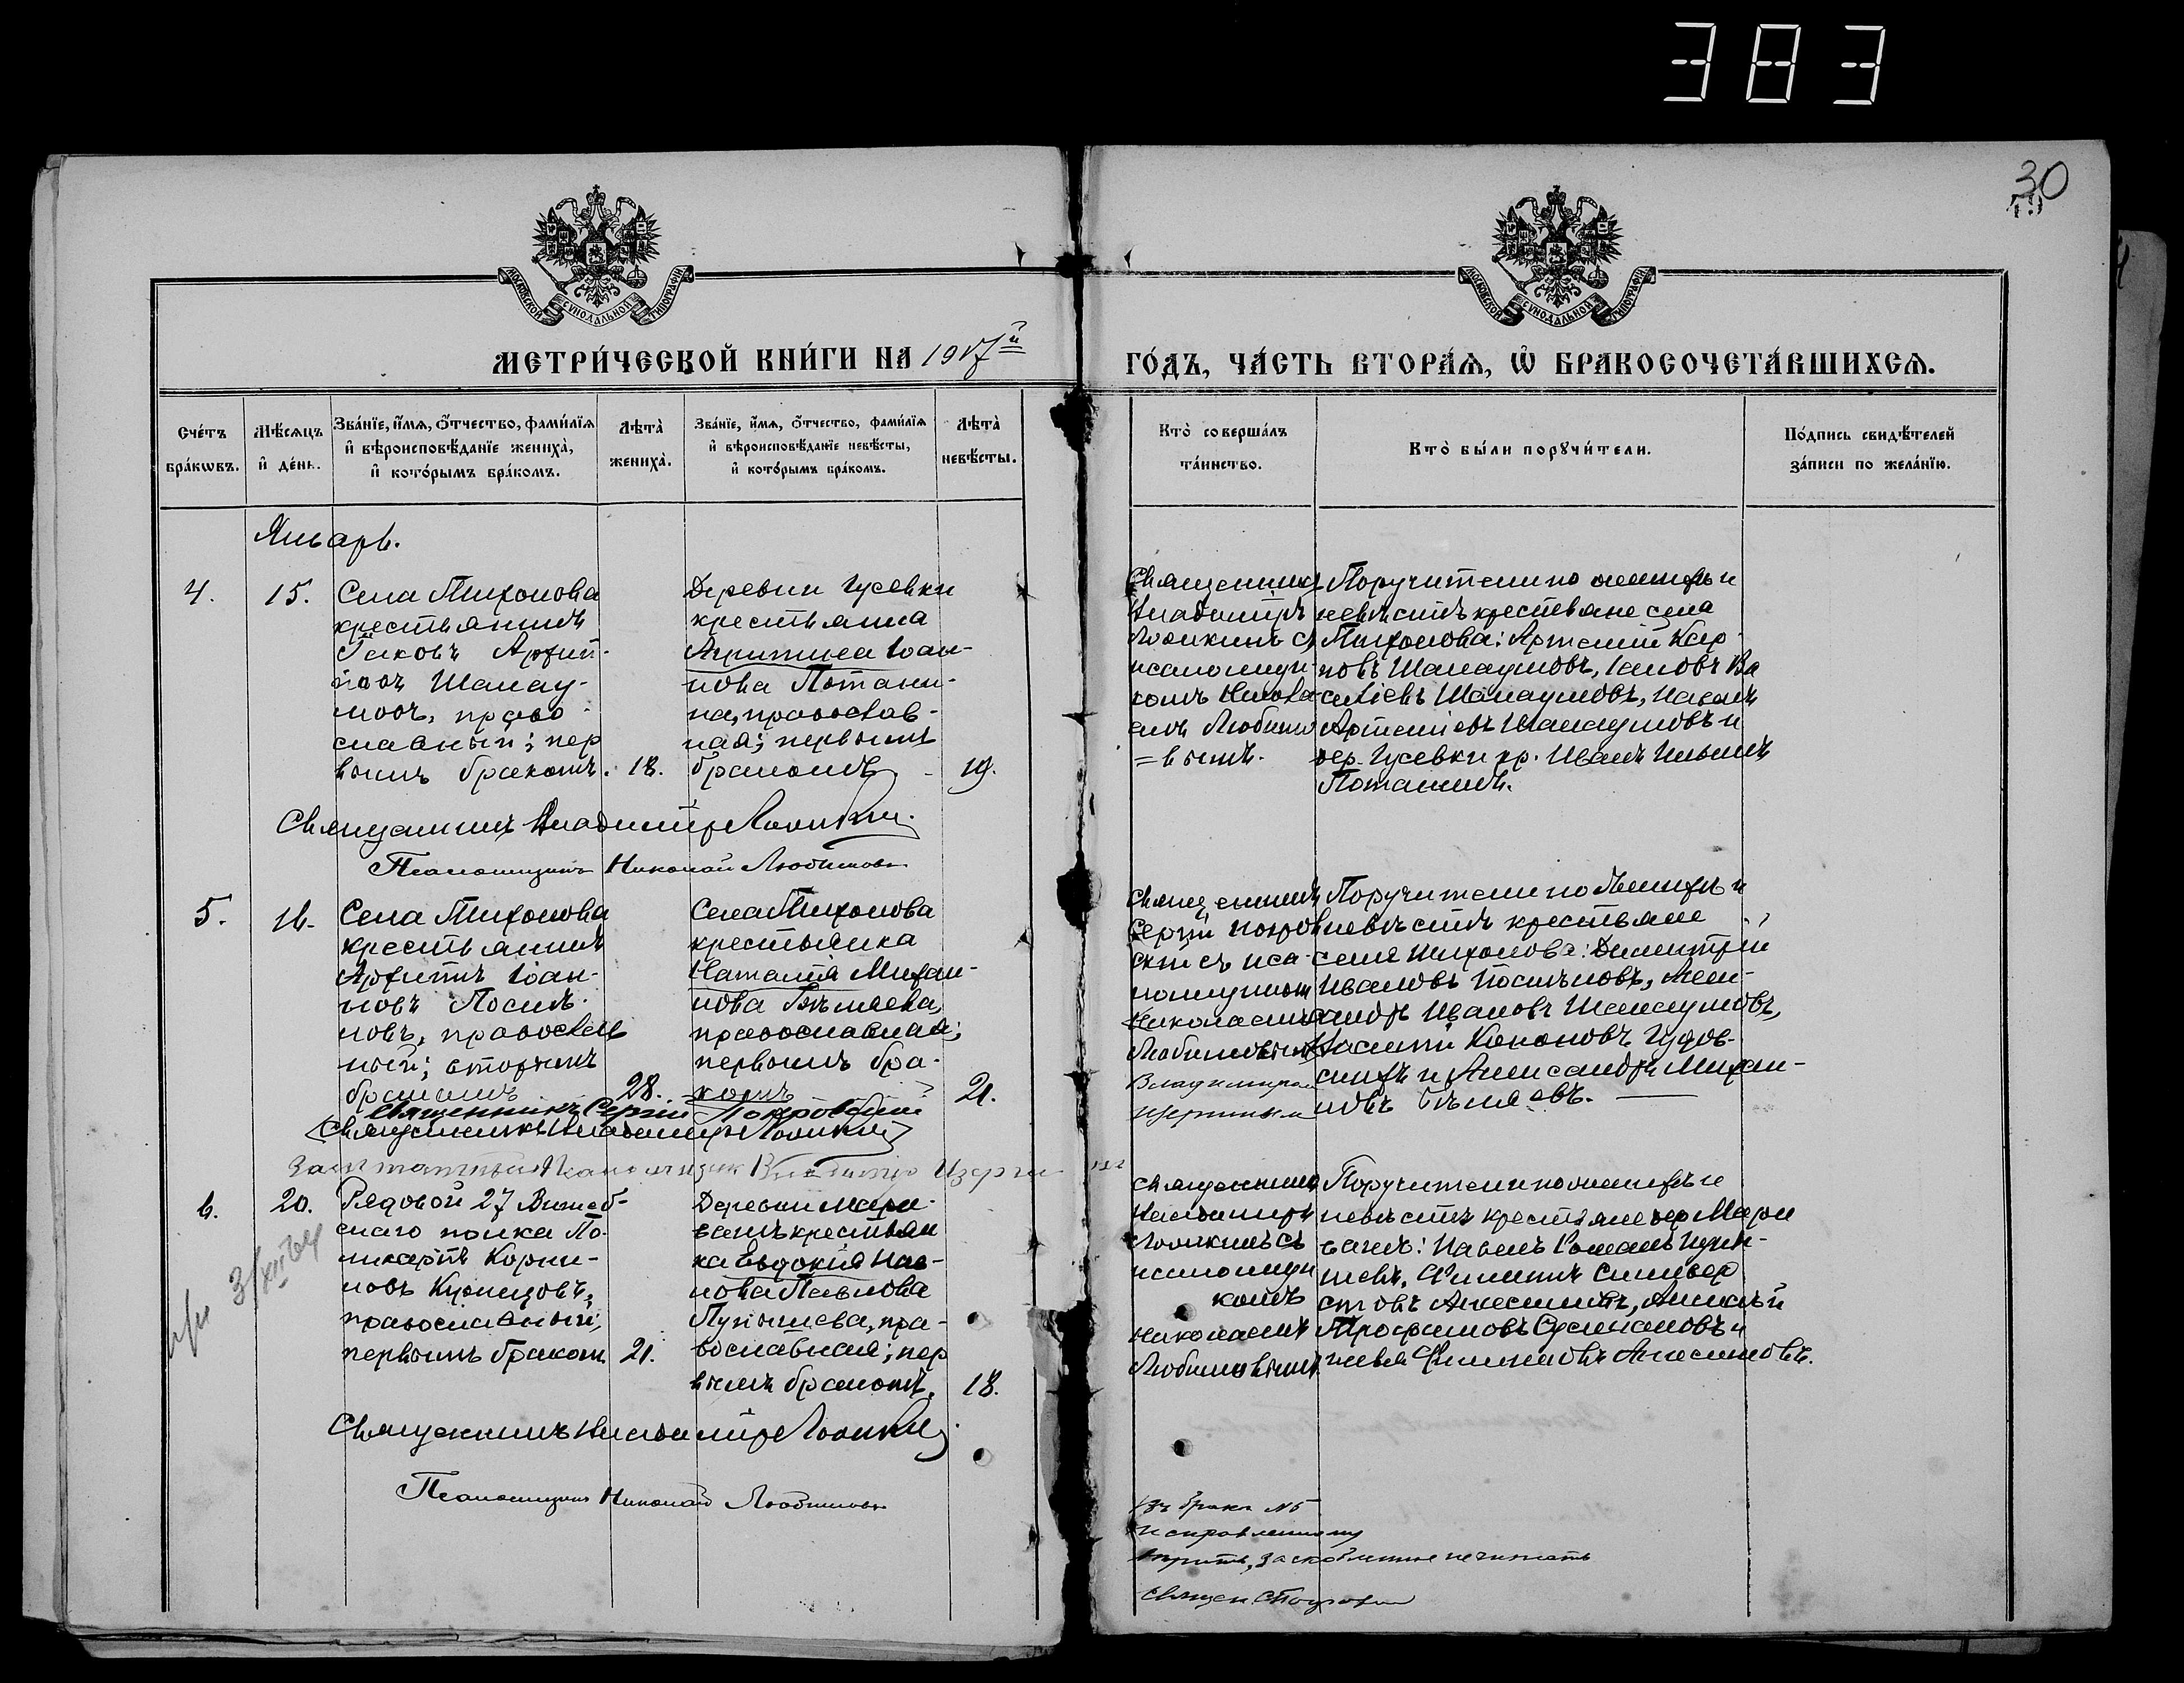 383
30
МОСКОВСКОЙ СУНОДАЛЬНОЙ ТИПОГРАФІИ
МОСКОВСКОЙ СУНОДАЛЬНОЙ ТИПОГРАФІИ
МЕТРИ́ЧЕСКОЙ КНИ́ГИ НА 1917й
ГО́ДЪ, ЧА́СТЬ ВТОРА́Ѧ, Ѽ БРАКОСОЧЕТА́ВШИХСѦ.
Сче́тъ бра́кѡвъ.
Мѣ́сѧцъ и҆ де́нь.
Зва́нїе, и҆́мѧ, ѻ҆́тчество, фами́лїѧ и҆ вѣроисповѣ́данїе жениха̀, и҆ кото́рымъ бра́комъ.
Лѣта̀ жениха̀.
Зва́нїе, и҆́мѧ, ѻ҆́тчество, фами́лїѧ и҆ вѣроисповѣ́данїе невѣ́сты, и҆ кото́рымъ бра́комъ.
Лѣта̀ невѣ́сты.
Кто̀ соверша́лъ та́инство.
Кто̀ бы́ли порꙋчи́тели.
По́дпись свидѣ́телей за́писи по жела́нїю.
Январь.
4.
15.
Села Тихонова
крестьянинъ
Іаковъ Архип-
повъ Шалау-
мовъ, право-
славный; пер
вымъ бракомъ.
18.
Деревни Гусевки
крестьянка
Іоан-
нова Потани-
на, православ-
ная; первымъ
бракомъ
19.
Священникъ
Владимиръ
съ
псаломщи-
комъ Никола
емъ Любимо
=вымъ.
Поручители по женихѣ и
невѣстѣ крестьяне села
Тихонова: Артемій Кар-
повъ Шалаумовъ, Іаковъ Ва
силіевъ Шалаумовъ, Павелъ
Артеміевъ Шалаумовъ и
дер. Гусевки кр. Иванъ Ильинъ
Потанинъ.
Священникъ Владимиръ
Псаломщикъ Николай Любимовъ
5.
16.
Села Тихонова
крестьянинъ
Архипъ Іоан-
новъ
православ
ный; вторымъ
бракомъ
28.
Села Тихонова
крестьянка
Наталія Михаи-
лова Бѣляева,
православная;
первымъ бра-
комъ
21.
Священникъ
Сергій Покров
скій съ пса-
ломщикомъ
Николаемъ
Любимовымъ
Владимиром
Поручители по женихѣ и
невѣстѣ крестьяне
села Тихонова: Димитрій
Ивановъ Алек-
сандръ Ивановъ Шалаумовъ,
Василій Кононовъ
и Александръ Михаи-
ловъ Бѣляевъ.
Священникъ Сергій Покровскій
Священникъ Владимиръ
Заштатный Псаломщик Владимир
6.
20.
Рядовой 27 Витеб-
скаго полка По-
ликарпъ Корни-
ловъ Кузнецовъ,
православный;
первымъ бракомъ
21.
Деревни Мари-
крестьян
ка Евдокія Пав-
лова Павлова
пра-
вославная; пер
вымъ бракомъ.
18.
Священникъ
Владимиръ
съ
псаломщи
комъ
Николаемъ
Любимовымъ
Поручители по женихѣ и
невѣстѣ крестьяне дер. Мари
Павелъ Романъ
Филиппъ Сильвер
стовъ Анисимовъ, Алексѣй
Трофимовъ и
Филипповъ Анисимовъ.
Священникъ Владимиръ
Псаломщикъ Николай Любимовъ
Въ бракѣ №5
исправленному
вѣрить, заскобленное не читать
Священ. С Покровскій